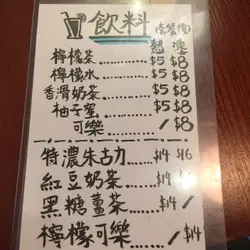 飲料 (套餐價)
熱 凍
檸檬茶 $5 $8
檸檬水 $5 $8
香滑奶茶 $5 $8
柚子蜜 $5 $8
可樂 / $8
特濃朱古力 $14 $16
紅豆奶茶 $14
黑糖薑茶 $14 /
檸檬可樂 / $14